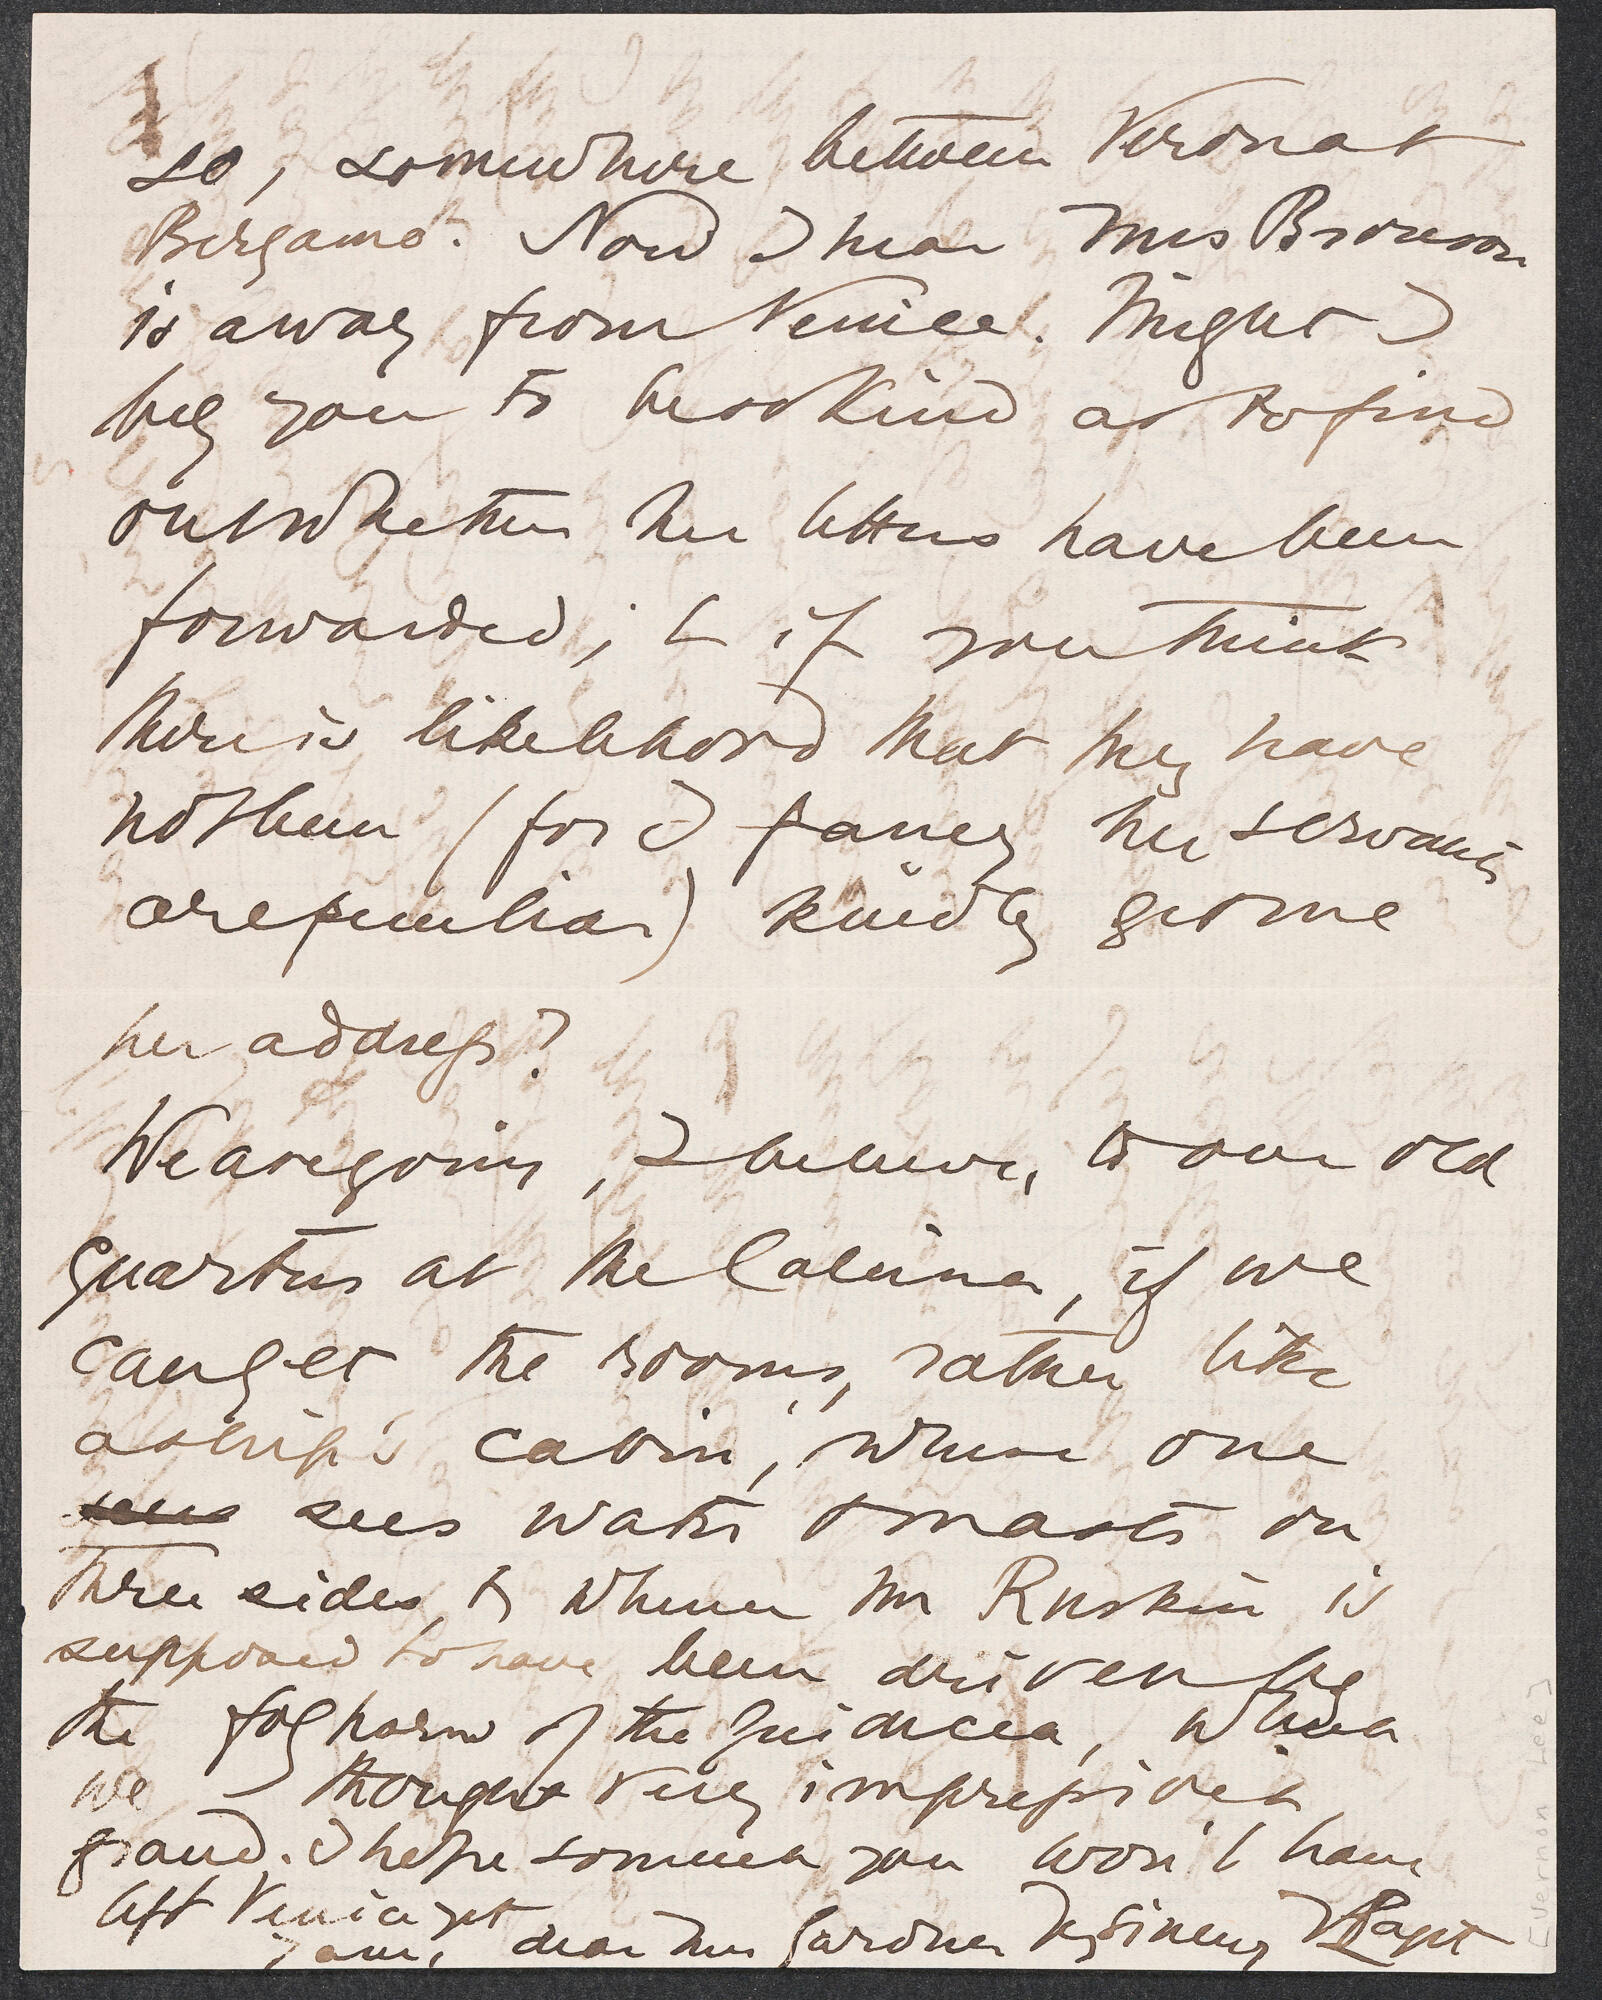 so, somewhere between Verona &
Bergamo. Now I hear Mrs Bronson
is away from Venice. Might I
beg you to be so kind as to find
out whether her letters have been
forwarded; & if you think
there is likelihood that they have
not been (for I fancy her servants
are peculiar) kindly get me
her address?
We are going, I believe, to our old
quarters at the Calcina, if we
can get the rooms, rather like
a ship's cabin, where one
sees water & masts on
three sides, & whence Mr Ruskin is
supposed to have been driven by
the fog horn of the Giudecca, which
we thought very impressive &
grand. I hope so much you won't have
left Venice yet
I am, dear Mrs Gardner Yrs sincerely V Paget
[Vernon Lee]